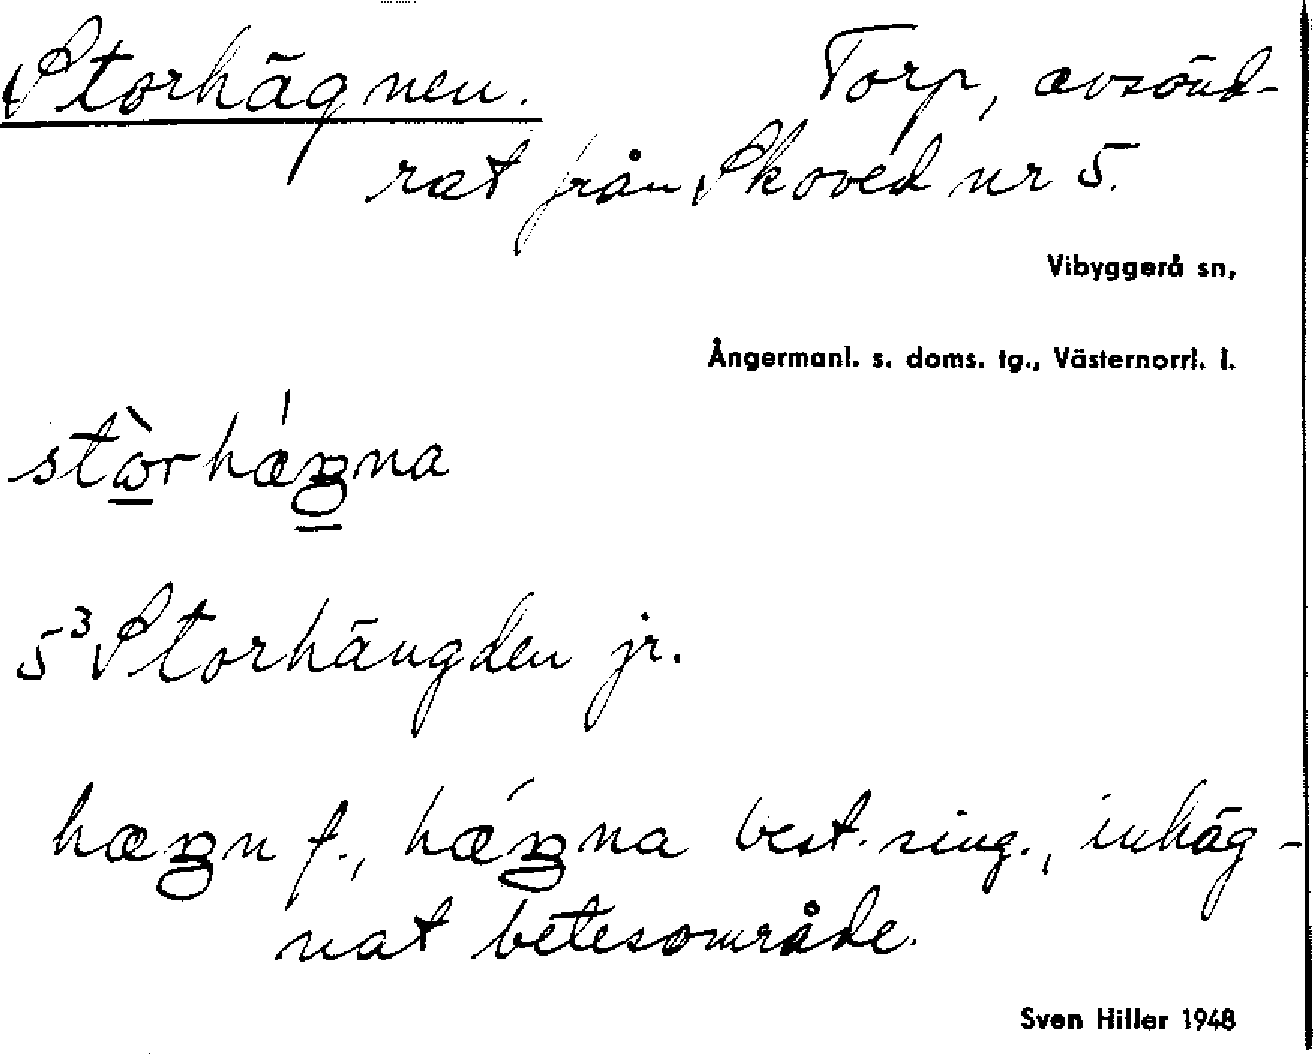 Storhägnen. Torp, avsönd-
rat från Skoved nr 5.
Vibyggerå sn,
Ångermanl. s. doms. tg., Västernorrl. l.
stὼrhǽgna
5³ Storhängden jr.
hægn f., hǽgna best. sing., inhäg-
nat betesområde.
Sven Hiller 1948